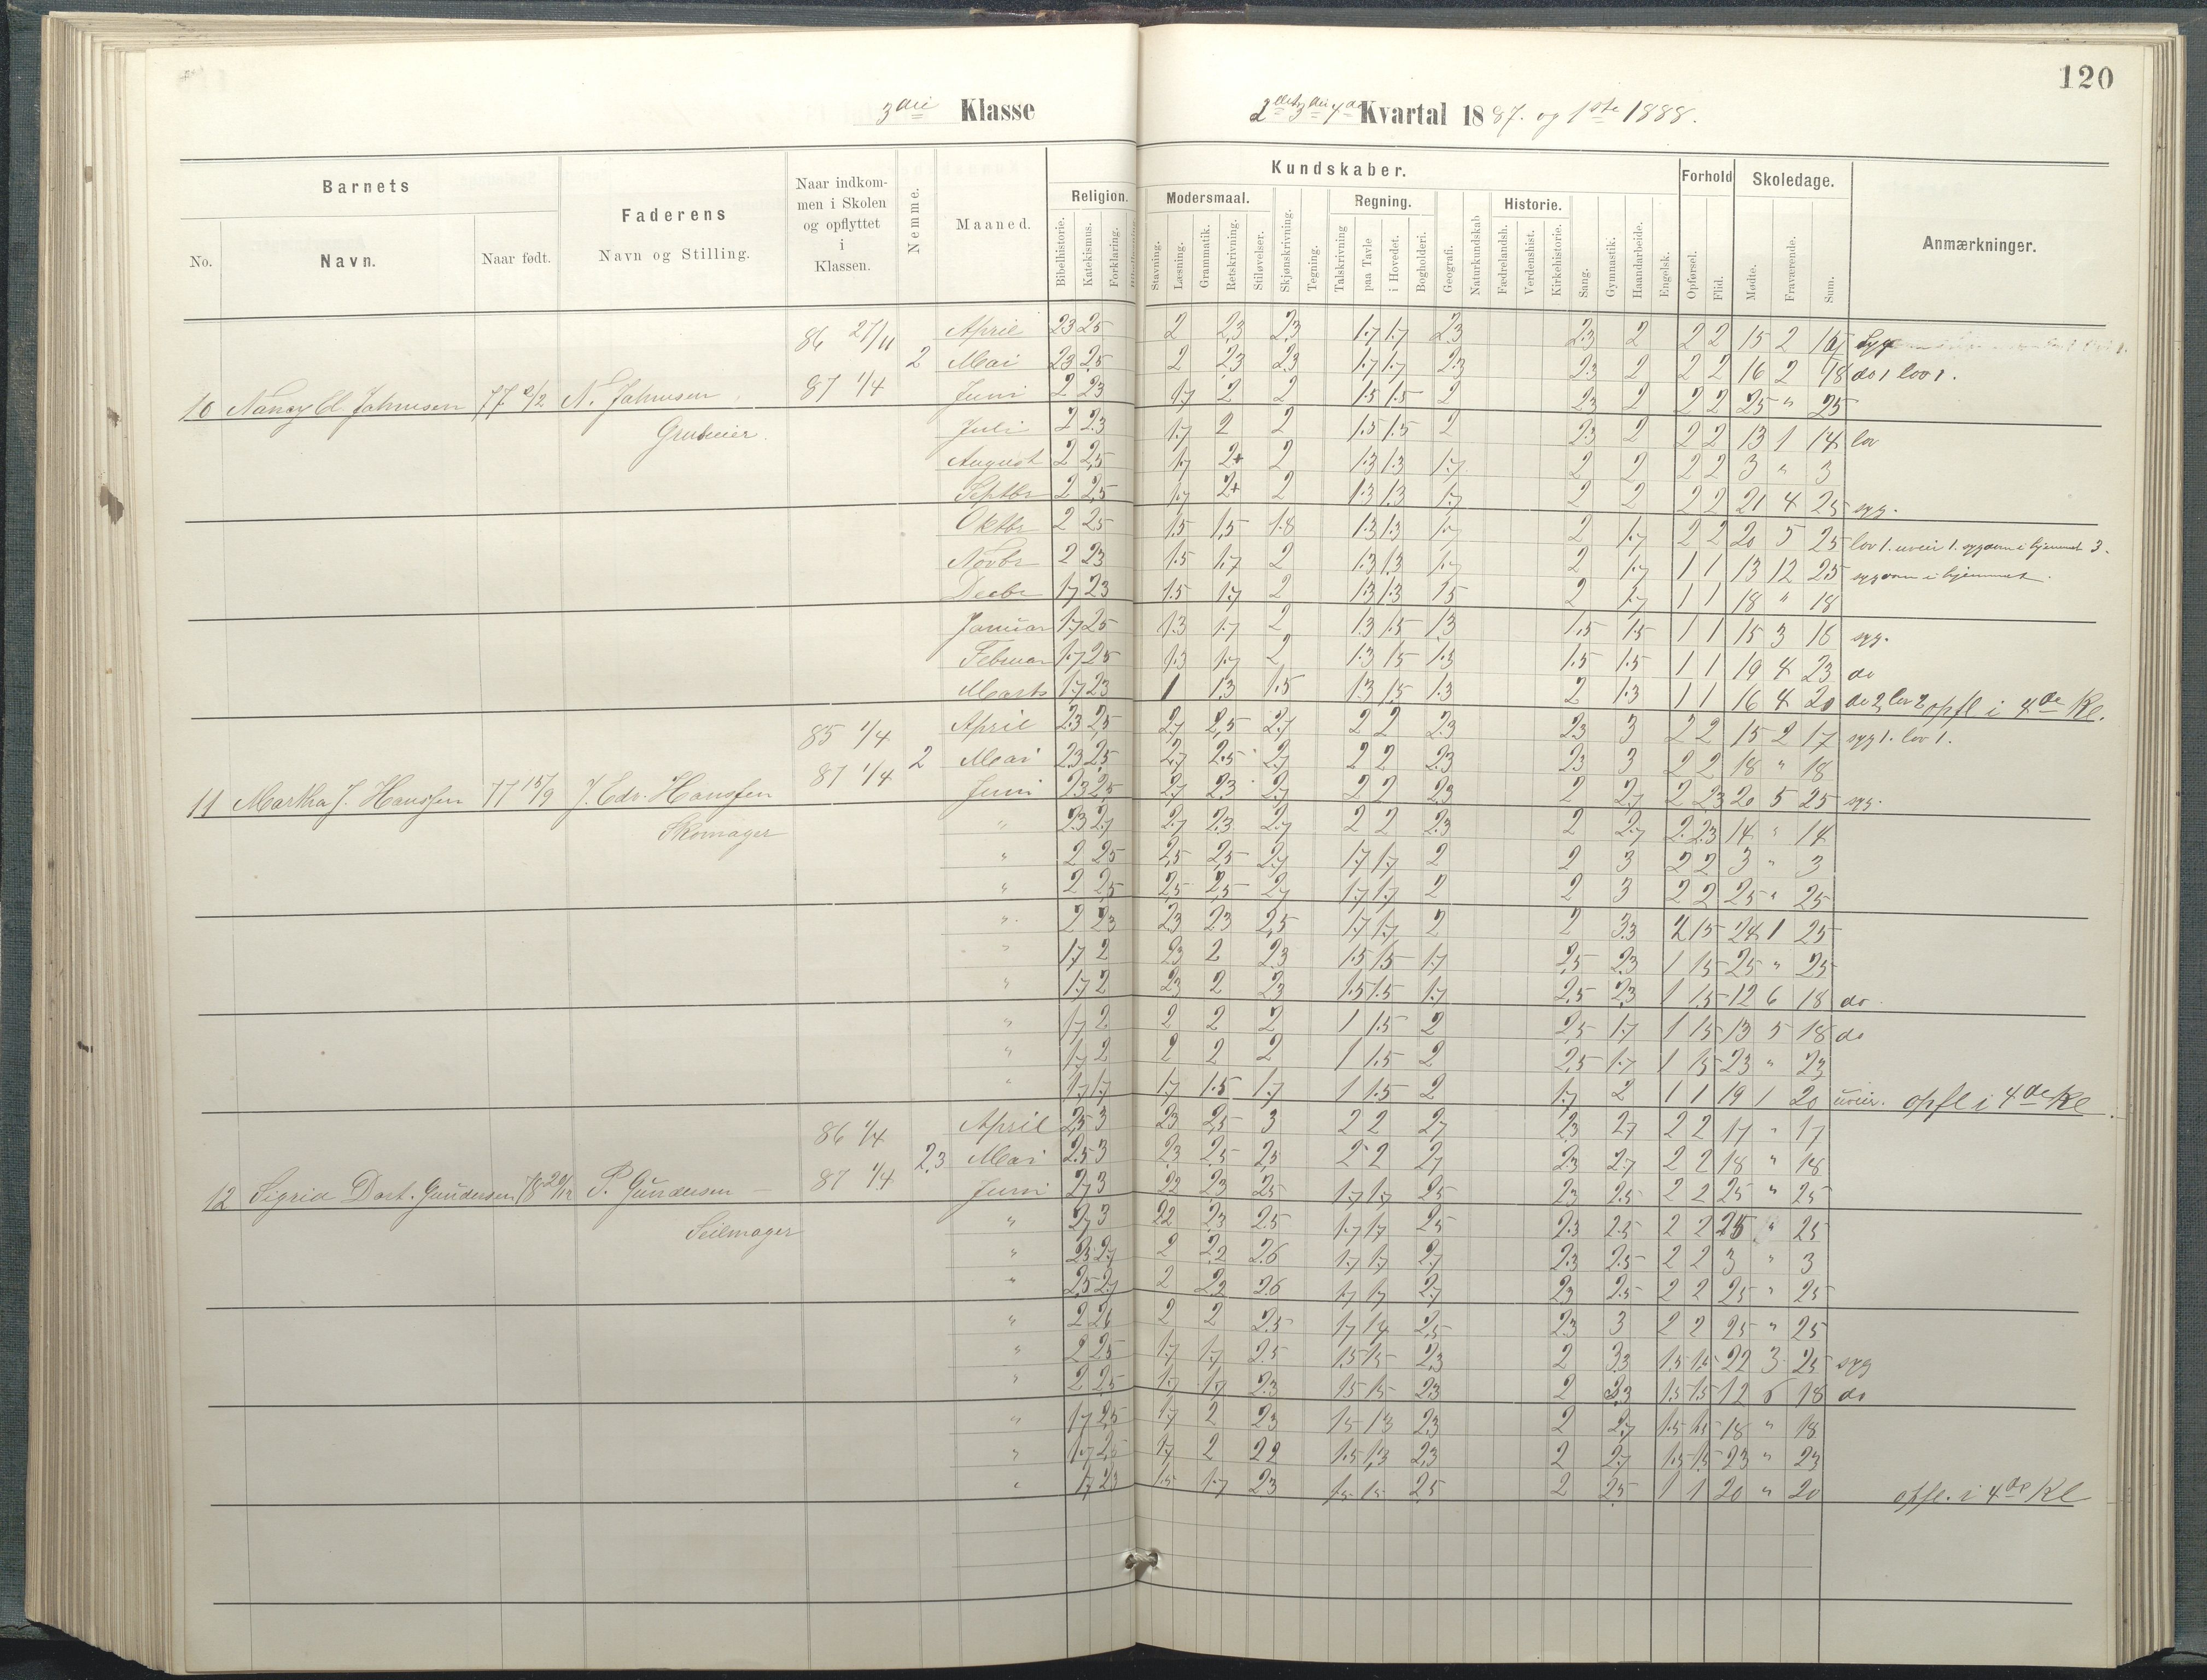 120
3die Klasse
2det 3die 4de Kvartal 1887. og 1ste 1888.
Barnets
Faderens
Naar indkommen i Skolen og opflyttet i Klassen.
Nemme.
Maaned.
Religion.
Kundskaber.
Forhold
Skoledage.
Anmærkninger.
Modersmaal.
Regning.
Historie.
No.
Navn.
Naar født.
Navn og Stilling.
Bibelhistorie.
Katekismus.
Forklaring.
Stavning.
Læsning.
Grammatik.
Retskrivning.
Stiløvelser.
Skjønskrivning.
Tegning.
Talskrivning
paa Tavle
i Hovedet.
Bogholderi.
Geografi.
Naturkundskab
Fædrelandsh.
Verdenshist.
Kirkehistorie.
Sang.
Gymnastik.
Haandarbeide.
Engelsk.
Opførsel.
Flid.
Mødte.
Fraværende.
Sum.
86 27/11 April 2.3 2.5 2 2.3 2.3 1.7 1.7 2.3 2.3 2 2 2 15 2 syg
2 Mai 2.3 2.5 2 2.3 2.3 1.7 1.7 2.3 2.3 2 2 2 16 2 18 do 1 lov 1.
10 Nancy 77 N. 87 1/4 Juni 2 2.3 1.7 2 2 1.5 1.5 2 2.3 2 2 2 25 " 25
Juli 2 2.3 1.7 2 2 1.5 1.5 2 2.3 2 2 2 13 1 14 lov
August 2 2.5 1.7 2+ 2 1.3 1.3 1.7 2 2 2 2 3 " 3
Septbr 2 2.5 1.7 2+ 2 1.3 1.3 1.7 2 2 2 2 21 4 25 syg.
Oktbr 2 2.5 1.5 1.5 1.8 1.3 1.3 1.7 2 1.7 2 2 20 5 25 lov 1. uveir 1. sygdom i hjemmet 3.
Novbr 2 2.3 1.5 1.7 2 1.3 1.3 1.7 2 1.7 1 1 13 12 25 sygdom i hjemmet.
Decbr 1.7 2.3 1.5 1.7 2 1.3 1.3 1.5 2 1.7 1 1 18 " 18
Januar 1.7 2.5 1.3 1.7 2 1.3 1.5 1.3 1.5 1.5 1 1 15 3 16 syg.
Februar 1.7 2.5 1.3 1.7 2 1.3 1.5 1.3 1.5 1.5 1 1 19 4 23 do
Marts 1.7 2.3 1 1.3 1.5 1.3 1.5 1.3 2 1.3 1 1 16 4 20 do 2, lov 2 opfl i 4de Kl.
85 1/4 April 2.3 2.5 2.7 2.5 2.7 2 2 2.3 2.3 3 2 2 15 2 17 syg 1. lov 1.
87 1/4 2 Mai 2.3 2.5 2.7 2.5 2.7 2 2 2.3 2.3 3 2 2 18 " 18
11 Martha J. Hanssen 77 15/9 J. Edv. Hanssen Juni 2.3 2.5 2.7 2.3 2.7 2 2 2.3 2 2.7 2 2.3 20 5 25 syg.
Skomager " 2.3 2.7 2.7 2.3 2.7 2 2 2.3 2 2.7 2 2.3 14 " 14
" 2 2.5 2.5 2.5 2.7 1.7 1.7 2 2 3 2 2 3 " 3
" 2 2.5 2.5 2.5 2.7 1.7 1.7 2 2 3 2 2 25 " 25
" 2 2.3 2.3 2.3 2.5 1.7 1.7 2 2 3.3 2 1.5 24 1 25
" 1.7 2 2.3 2 2.3 1.5 1.5 1.7 2.5 2.3 1 1.5 25 " 25
" 1.7 2 2.3 2 2.3 1.5 1.5 1.7 2.5 2.3 1 1.5 12 6 18 do
" 1.7 2 2 2 2 1 1.5 2 2.5 1.7 1 1.5 13 5 18 do
" 1.7 2 2 2 2 1 1.5 2 2.5 1.7 1 1.5 23 " 23
" 1.7 1.7 1.7 1.5 1.7 1 1.5 2 1.7 2 1 1 19 1 20 uveir. opfl i 4de Kl.
86 1/4 April 2.5 3 2.3 2.5 3 2 2 2.7 2.3 2.7 2 2 17 " 17
2.3 Mai 2.5 3 2.3 2.5 2.5 2 2 2.7 2.3 2.7 2 2 18 " 18
12 Sigrid Dort. Gundersen 78 P. Gundersen 87 1/4 Juni 2.7 3 2.2 2.3 2.5 1.7 1.7 2.5 2.3 2.5 2 2 25 " 25
Seilmager " 2.7 3 2.2 2.3 2.5 1.7 1.7 2.5 2.3 2.5 2 2 25 " 25
" 2.5 2.7 2 2.2 2.6 1.7 1.7 2.7 2.3 2.5 2 2 3 " 3
" 2.5 2.7 2 2.2 2.6 1.7 1.7 2.7 2.3 2.5 2 2 25 " 25
" 2 2.6 2 2 2.5 1.7 1.4 2.5 2.3 3 2 2 25 " 25
" 2 2.5 1.7 1.7 2.5 1.5 1.5 2.3 2 3.3 1.5 1.5 22 3 25 syg
" 2 2.5 1.7 1.7 2.3 1.5 1.5 2.3 2 3.3 1.5 1.5 12 6 18 do
" 1.7 2.5 1.7 2 2.3 1.5 1.3 2.3 2 2.7 1.5 1.5 18 " 18
" 1.7 2.5 1.7 2 2.2 1.5 1.3 2.3 2 2.7 1.5 1.5 23 " 23
" 1.7 2.3 1.5 1.7 2.3 1.5 1.5 2.5 2 2.5 1 1 20 " 20 opfl. i 4de Kl